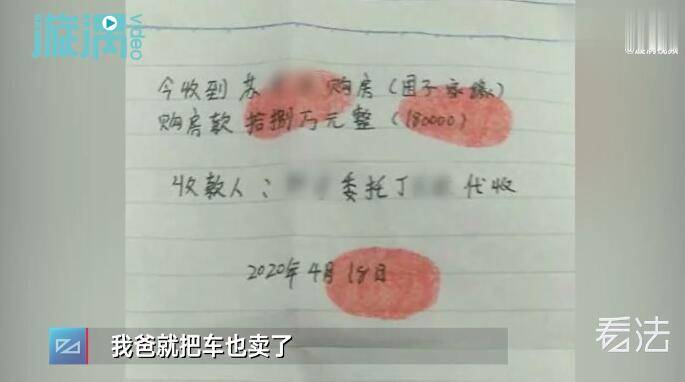 漩涡
video
今收到苏 购房（团子家缘）
购房款拾捌万元整（180000）
收款人： 委托丁 代收
2020年4月18日
我爸就把车也卖了
看法